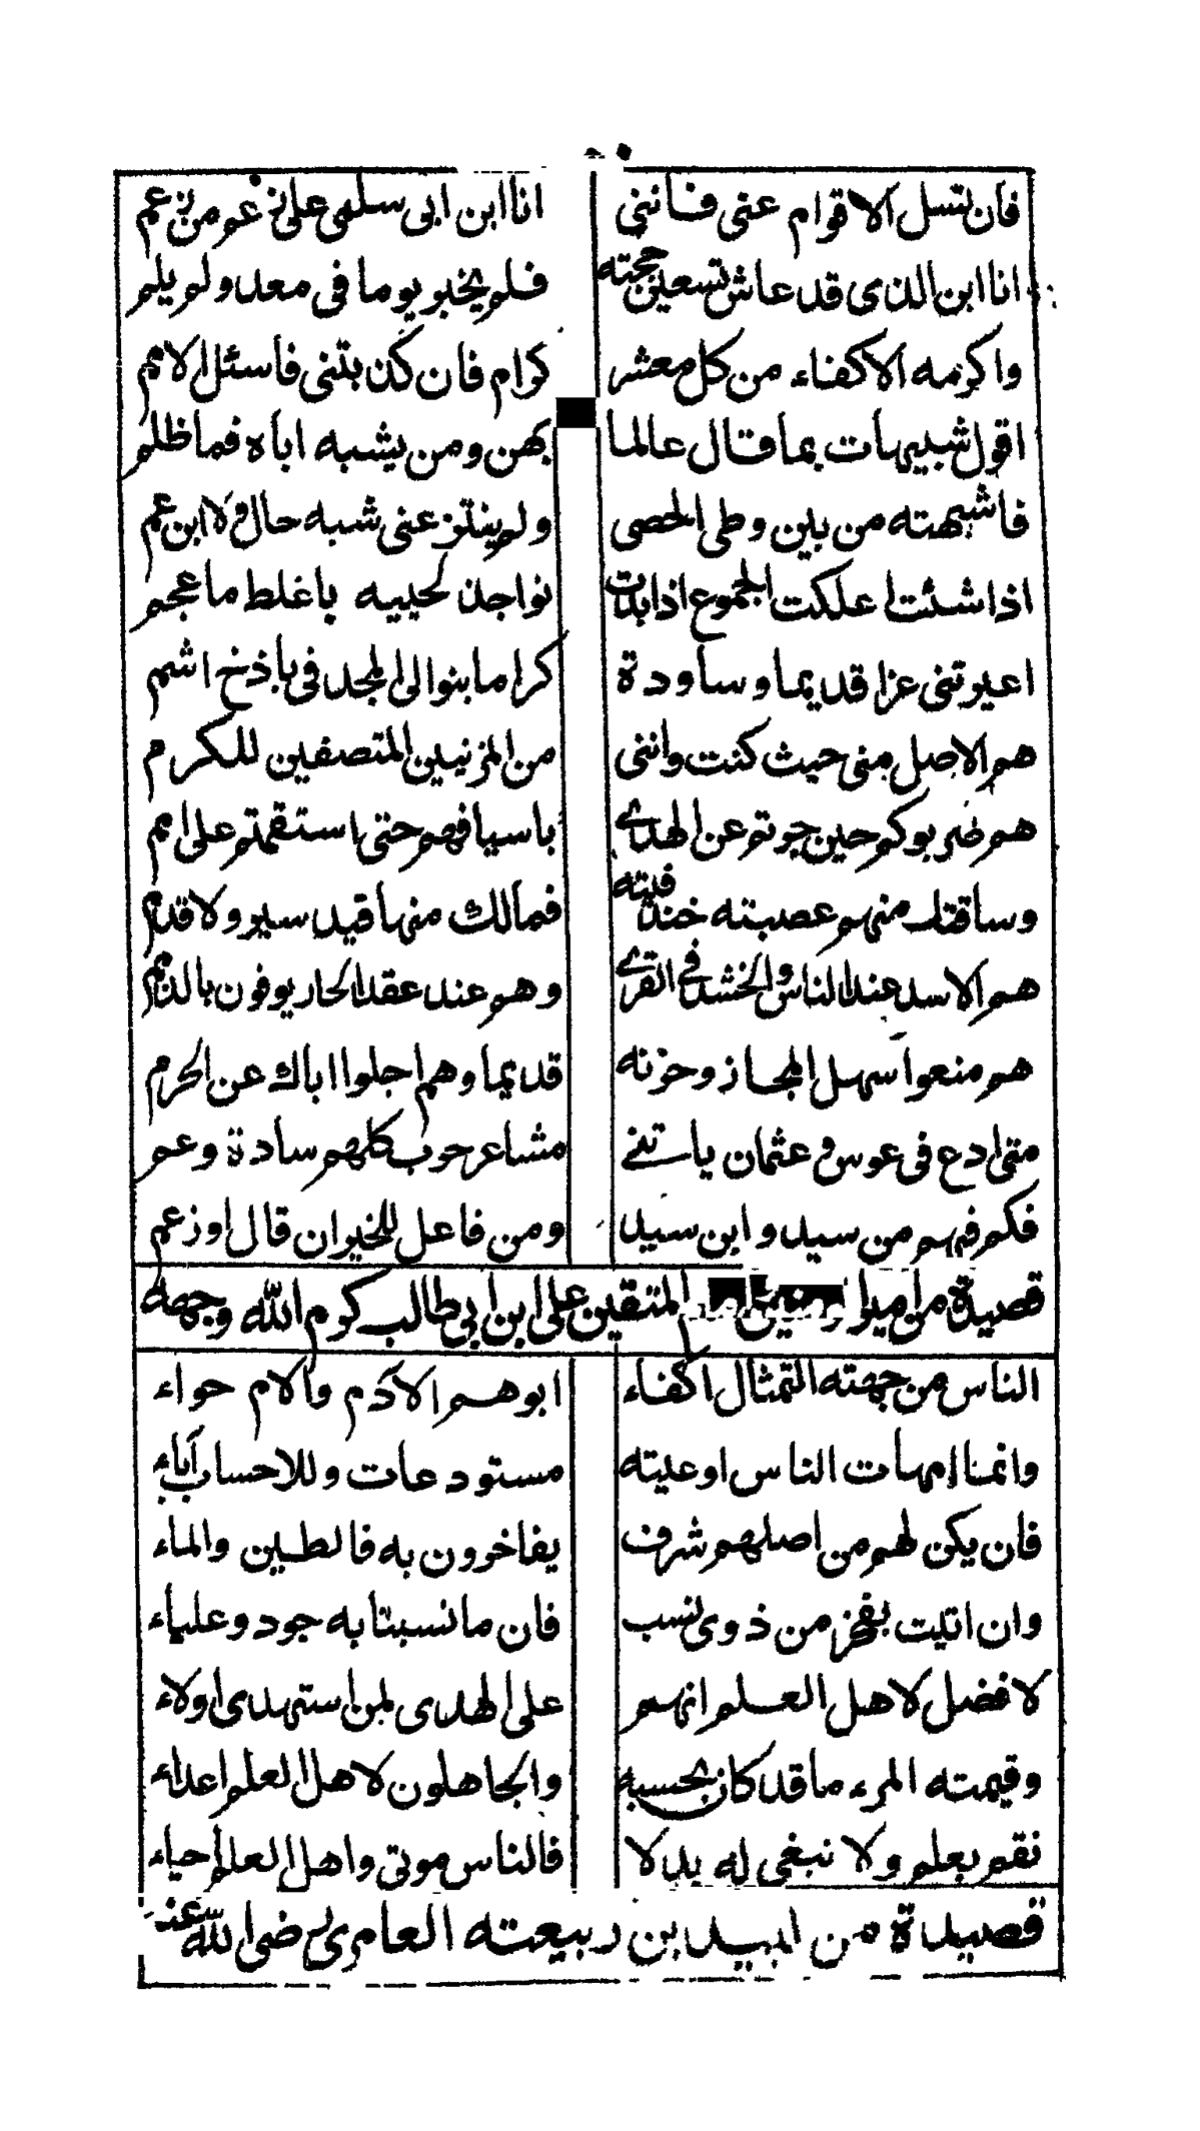 فان تسل الاقوام عنى فاننى انا ابن ابى سلمى على رغم من رغم
انا ابن الذى قد عاش تسعين حجته فلم يخبر يوما فى معد ولم يلم
واكرمه الاكفاء من كل معشر كرام فان كذبتنى فاسئل الامم
اقول شبيهات بما قال عالما بهن ومن يشبه اباه فما ظلم
فاشبهته من بين وطى الحصى ولم ينتزعنى شبه حال ولا ابن عم
اذا شئت اعلكت الجموع اذا بدت نواجذ لحييه باغلط ما عجم
اعيرتنى عزا قديما وسادة كراما بنوا لى المجد فى باذخ اشم
هم الاصل منى حيث كنت واننى من المزنيين المتصفين للكرم
هم ضربوكم حين جرتم عن الهدى باسيافهم حتى استقمتم على امم
وساقتك منهم عصبته خندفيته فمالك منها قيد سير ولا قدم
هم الاسد عند الناس والخشد فى القرى وهم عند عقد الجار يوفون بالذمم
هم منعوا سهل المجاز وحزنه قديما وهم اجلوا اباك عن الحرم
متى ادع فى عوس و عثمان ياتنى مشاعر حرب كلهم سادة وعم
فكم فيهم من سيد وابن سيد ومن فاعل للخيران قال او زعم
قصيدة من امير المتقين على ابن ابى طالب كرم الله وجهه
الناس من جهته التمثال اكفاء ابوهم الآدم والام حواء
وانما امهات الناس اوعيته مستودعات وللاحساب آباء
فان يكن لهم من اصلهم شرف يفاخرون به فالطين والماء
وان اتيت بفخر من ذوى نسب فان ما نسبتا به جود وعلياء
لا فضل لاهل العلم انهم على الهدى لمن استهدى اولاء
وقيمته المرء ما قد كان يحسبه والجاهلون لاهل العلم اعداء
نقم بعلم ولا نبغى له بدلا فالناس موتى واهل العلم احياء
قصيدة من لبيد بن ربيعته العامرى رضى الله عنه